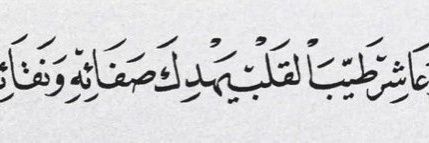 عَاشِرْ طَيِّبَ الْقَلْبِ يَهْدِكَ صَفَائِهِ وَنَقَائِ